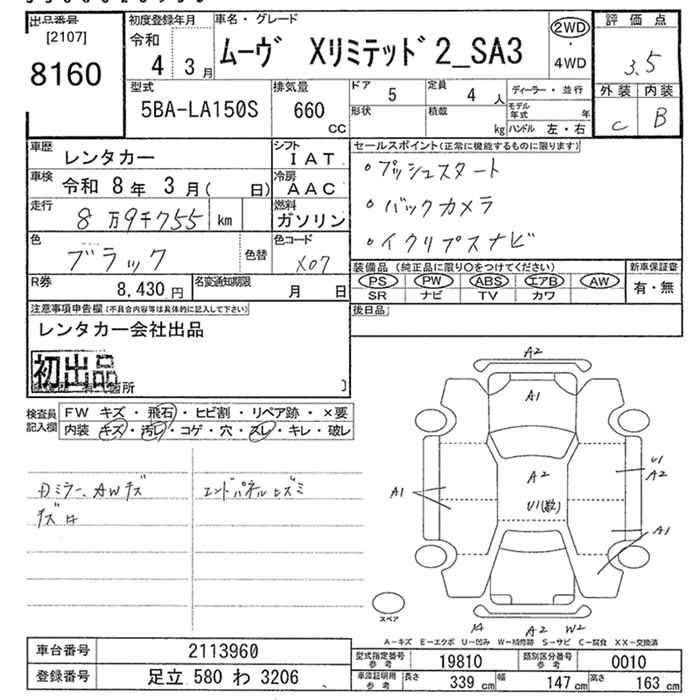 出品番号
[2107]
8160
初度登録年月
令和
4 3月
車名・グレード
ムーヴ Xリミテッド2_SA3
2WD
・
4WD
評価点
3.5
外装 内装
C B
型式
5BA-LA150S
排気量
660
cc
ドア 5
定員 4 人
形状
積載 kg
ディーラー・並行
モデル年式 年
ハンドル 左・右
車歴 レンタカー
シフト IAT
車検 令和 8年 3月( 日)
冷房 AAC
走行 8万9千755 km
燃料 ガソリン
色 ブラック 色替
色コード X07
R券 8,430円
名変通知期限 月 日
セールスポイント(正常に機能するものに限ります)
・プッシュスタート
・バックカメラ
・イクリプスナビ
装備品 (純正品に限り○をつけてください)
PS PW ABS エアB AW
SR ナビ TV カワ
新車保証書
有・無
後日品
注意事項申告欄(不具合内容等は具体的に記入して下さい)
レンタカー会社出品
初出品
検査員記入欄
FW キズ・飛石・ヒビ割・リペア跡・×要
内装 キズ・汚レ・コゲ・穴・スレ・キレ・破レ
ミラー、AWキズ
エンドパネルヒズミ
A2
A1
A2
U1(数)
A1
U1
A2
A1
A2 W2
スペア
A-キズ E-エクボ U-凹み W-補修跡 S-サビ C-腐食 XX-交換済
車台番号 2113960
登録番号 足立 580 わ 3206
型式指定番号参考 19810
類別区分番号参考 0010
車検証明用参考 長さ 339 cm 幅 147 cm 高さ 163 cm